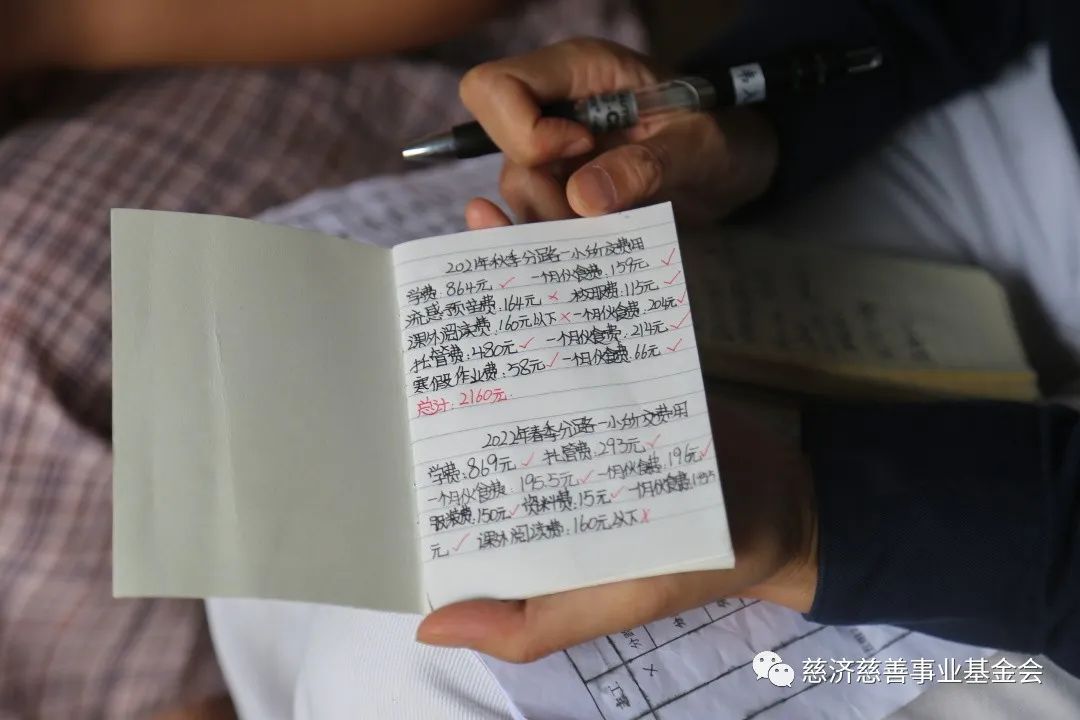 2021年秋季分路一小所交费用
学费:864元 ✓ 一个月伙食费:159元 ✓
流感预苗费:164元 × 校服费:115元 ✓
课外阅读费:160元以下 × 一个月伙食费:204元 ✓
托管费:480元 ✓ 一个月伙食费:214元 ✓
寒假作业费:58元 ✓ 一个月伙食费:66元 ✓
总计:2160元
2022年春季分路一小所交费用
学费:869元 ✓ 托管费:293元 ✓
一个月伙食费:195.5元 ✓ 一个月伙食费:196元 ✓
服装费:150元 ✓ 资料费:15元 ✓ 一个月伙食费:195.5
元 ✓ 课外阅读费:160元以下 ×
慈济慈善事业基金会